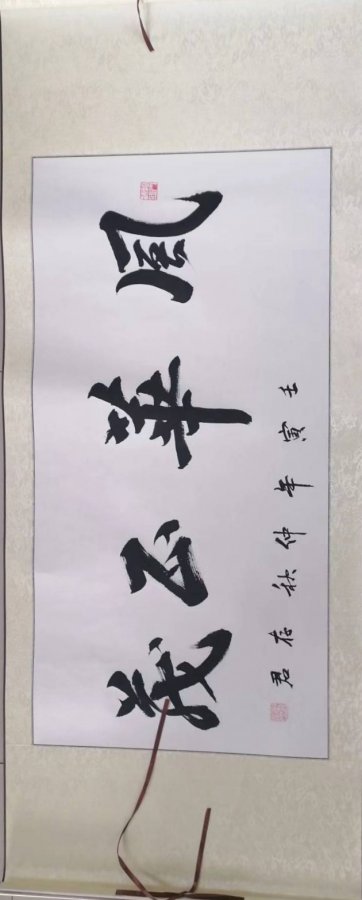 風華正茂
壬寅年仲秋存君